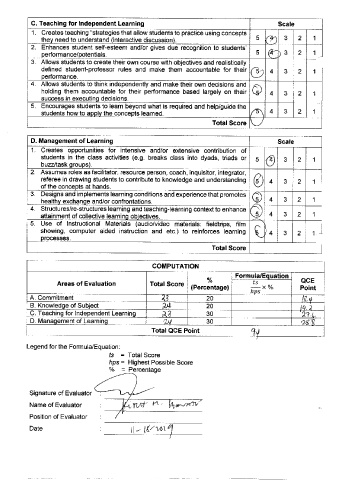 C. Teaching for Independent Learning Scale
1. Creates teaching strategies that allow students to practice using concepts they need to understand (interactive discussion). 5 4 3 2 1
2. Enhances student self-esteem and/or gives due recognition to students' performance/potentials. 5 4 3 2 1
3. Allows students to create their own course with objectives and realistically defined student-professor rules and make them accountable for their performance. 5 4 3 2 1
4. Allows students to think independently and make their own decisions and holding them accountable for their performance based largely on their success in executing decisions. 5 4 3 2 1
5. Encourages students to learn beyond what is required and help/guide the students how to apply the concepts learned. 5 4 3 2 1
Total Score
D. Management of Learning Scale
1. Creates opportunities for intensive and/or extensive contribution of students in the class activities (e.g. breaks class into dyads, triads or buzz/task groups). 5 4 3 2 1
2. Assumes roles as facilitator, resource person, coach, inquisitor, integrator, referee in drawing students to contribute to knowledge and understanding of the concepts at hands. 5 4 3 2 1
3. Designs and implements learning conditions and experience that promotes healthy exchange and/or confrontations. 5 4 3 2 1
4. Structures/re-structures learning and teaching-learning context to enhance attainment of collective learning objectives. 5 4 3 2 1
5. Use of Instructional Materials (audio/video materials: fieldtrips, film showing, computer aided instruction and etc.) to reinforces learning processes. 5 4 3 2 1
Total Score
COMPUTATION
Areas of Evaluation Total Score % (Percentage) Formula/Equation ts/hps × % QCE Point
A. Commitment 23 20 18.4
B. Knowledge of Subject 24 20 19.2
C. Teaching for Independent Learning 23 30 27.6
D. Management of Learning 24 30 28.8
Total QCE Point 94
Legend for the Formula/Equation:
ts = Total Score
hps = Highest Possible Score
% = Percentage
Signature of Evaluator :
Name of Evaluator :
Position of Evaluator :
Date : 11-18-2019